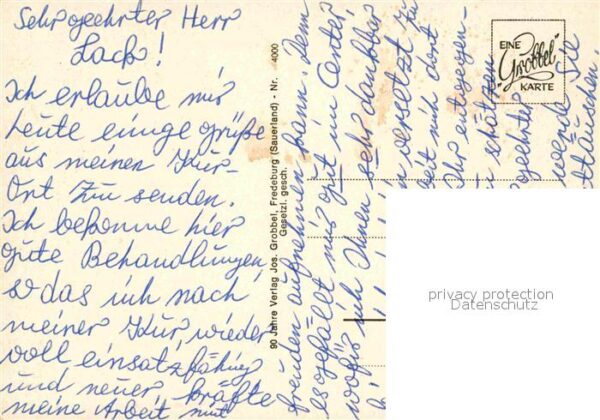 Sehr geehrter Herr
Lack!
Ich erlaube mir
heute einige Grüße
aus meinen Kur-
Ort zu senden.
Ich bekomme hier
gute Behandlungen,
so das ich nach
meiner Kur, wieder
voll einsatzfähig
und neuer kräfte
meine Arbeit mit
freuden aufnehmen kann. Denn
es gefällt mir gut im Center,
wofür ich Ihnen sehr dankbar
versetzt zu
mich dort
Ihr entgegen-
zu schätzen
geehrter
werde Sie
täuschen.
90 Jahre Verlag Jos. Grobbel, Fredeburg (Sauerland) - Nr. 4000
Gesetzl. gesch.
EINE
"Grobbel"
KARTE
privacy protection
Datenschutz